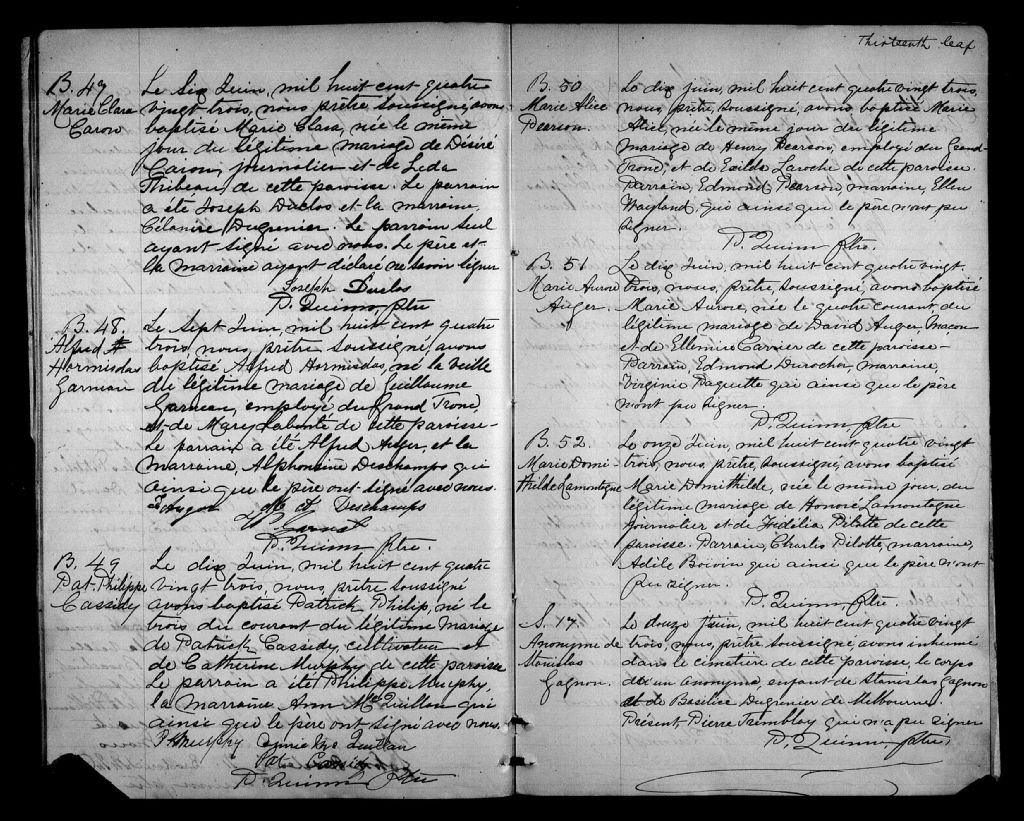 Thirteenth leaf
B. 47
Marie Clara
Caron
Le Six Juin, mil huit cent quatre
vingt-trois, nous, prêtre soussigné, avons
baptisé Marie Clara, née le même
jour du légitime mariage de Désiré
Caron, journalier et de Leda
Thibeau, de cette paroisse. Le parrain
a été Joseph Duclos et la marraine,
Célanire Dugrenier. Le parrain seul
ayant signé avec nous. Le père et
la marraine ayant déclaré ne savoir signer
Joseph Duclos
D. Quinn ptre
B. 48.
Alfred
Hormisdas
Garneau
Le Sept Juin, mil huit cent quatre
trois, nous, prêtre soussigné, avons
baptisé Alfred Hormisdas, né la veille
du légitime mariage de Guillaume
Garneau, employé du Grand Tronc,
et de Mary Labonté de cette paroisse-
Le parrain a été Alfred Auger, et la
marraine, Alphonsine Deschamps qui
ainsi que le père ont signé avec nous.
Deschamps
D. Quinn Ptre.
B. 49
Pat. Philippe
Cassidy
Le dix Juin, mil huit cent quatre
vingt trois, nous, prêtre soussigné
avons baptisé Patrick Philip, né le
trois du courant du légitime Mariage
de Patrick Cassidy, cultivateur et
de Catherine Murphy de cette paroisse
Le parrain a été Philippe Murphy,
la marraine Ann McQuillan qui
ainsi que le père ont signé avec nous.
P. Murphy Quillan
Pat Cassidy
D. Quinn ptre
B. 50
Marie Alice
Pearson.
Le dix juin, mil huit cent quatre vingt trois,
nous, prêtre, soussigné, avons baptisé Marie
Alice, née le même jour du légitime
mariage de Henry Pearson, employé du Grand-
Tronc, et de Exilda Laroche de cette paroisse.
Parrain, Edmond Pearson, marraine, Ellen
Wayland, qui ainsi que le père n'ont pu
signer.
D. Quinn ptre.
B. 51
Marie Aurore
Auger.
Le dix Juin, mil huit cent quatre vingt.
trois, nous, prêtre, soussigné, avons baptisé
Marie Aurore, née le quatre courant du
légitime mariage de David Auger, macon
et de Ellémire Carrier de cette paroisse-
Parrain Edmond Durocher, marraine,
Virginie Paquette qui ainsi que le père
n'ont pu signer.
D. Quinn ptre
B. 52.
Marie Domi-
thilde Lamontagne
Le onze Juin, mil huit cent quatre vingt
trois, nous, prêtre, soussigné, avons baptisé
Marie Domithilde, née le même jour, du
légitime mariage de Honoré Lamontagne
journalier et de Fidélia Pilotte de cette
paroisse. Parrain, Charles Pilotte, marraine,
Adèle Boivin qui ainsi que le père n'ont
pu signer.
D. Quinn ptre.
S. 17
Anonyme de
Stanislas
Gagnon.
Le douze Juin, mil huit cent quatre vingt
trois, nous, prêtre, soussigné, avons inhumé
dans le cimetière de cette paroisse, le corps
d'un anonyme, enfant de Stanislas Gagnon
et de Basilise Dugrenier de Melbourne.
Présent, Pierre Tremblay qui n'a pu signer
D. Quinn ptre.